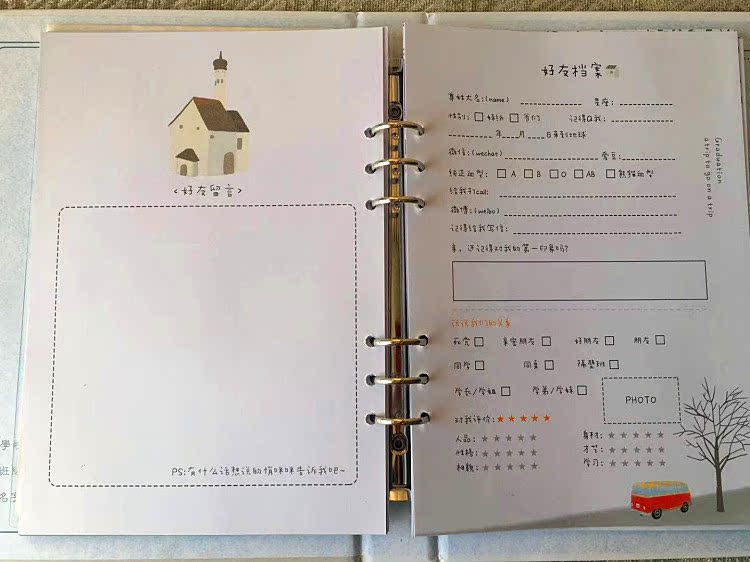 <好友留言>
PS:有什么话想说的悄咪咪告诉我吧~
學
班
名字
好友档案
尊姓大名:(name) 星座:
性别: 妹纸 爷们 记得Q我:
年 月 日来到地球
微信:(wechat) 爱豆:
纯正血型: A B O AB 熊猫血型
给我打call:
微博:(weibo)
记得给我写信:
亲,还记得对我的第一印象吗?
说说我们的关系
敌党 亲密朋友 好朋友 朋友
同学 同桌 隔壁班
学长/学姐 学弟/学妹
PHOTO
对我评价:★★★★★
人品:★★★★★ 身材:★★★★★
性格:★★★★★ 才艺:★★★★★
相貌:★★★★★ 学习:★★★★★
Graduation
a trip to go on a trip